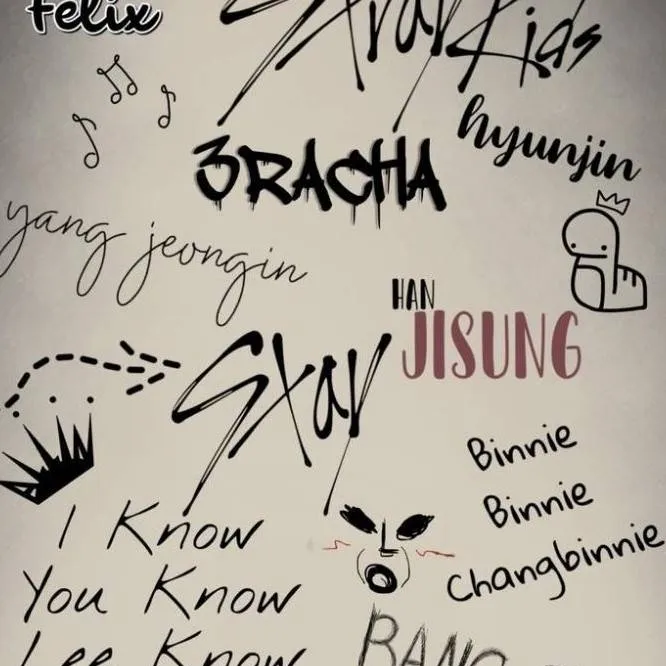 Felix
Stray Kids
hyunjin
3RACHA
yang jeongin
HAN
JISUNG
Stay
Binnie
Binnie
Changbinnie
I Know
You Know
Lee Know
BANG